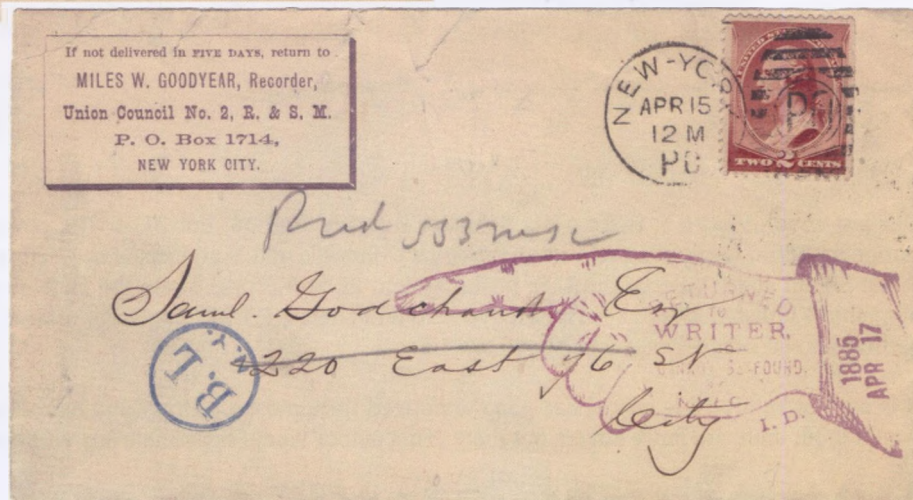 If not delivered in FIVE DAYS, return to
MILES W. GOODYEAR, Recorder,
Union Council No. 2, R. & S. M.
P. O. Box 1714,
NEW YORK CITY.
NEW-YORK
APR 15
12 M
PO
UNITED STATES
TWO 2 CENTS
Saml. Esq
220 East 76 St
City
RETURNED
TO
WRITER
CANNOT BE FOUND.
I. D.
1885
APR 17
B. L.
N.Y.